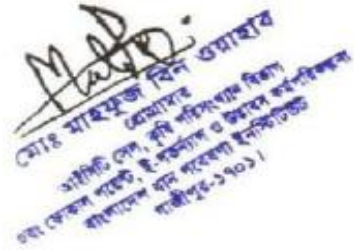 মোঃ মাহফুজ বিন ওয়াহাব
প্রোগ্রামার
আইসিটি সেল, কৃষি পরিসংখ্যান বিভাগ
এবং ফোকাল পয়েন্ট, ই-গভর্ন্যান্স ও উদ্ভাবন কর্মপরিকল্পনা
বাংলাদেশ ধান গবেষণা ইনস্টিটিউট
গাজীপুর-১৭০১।